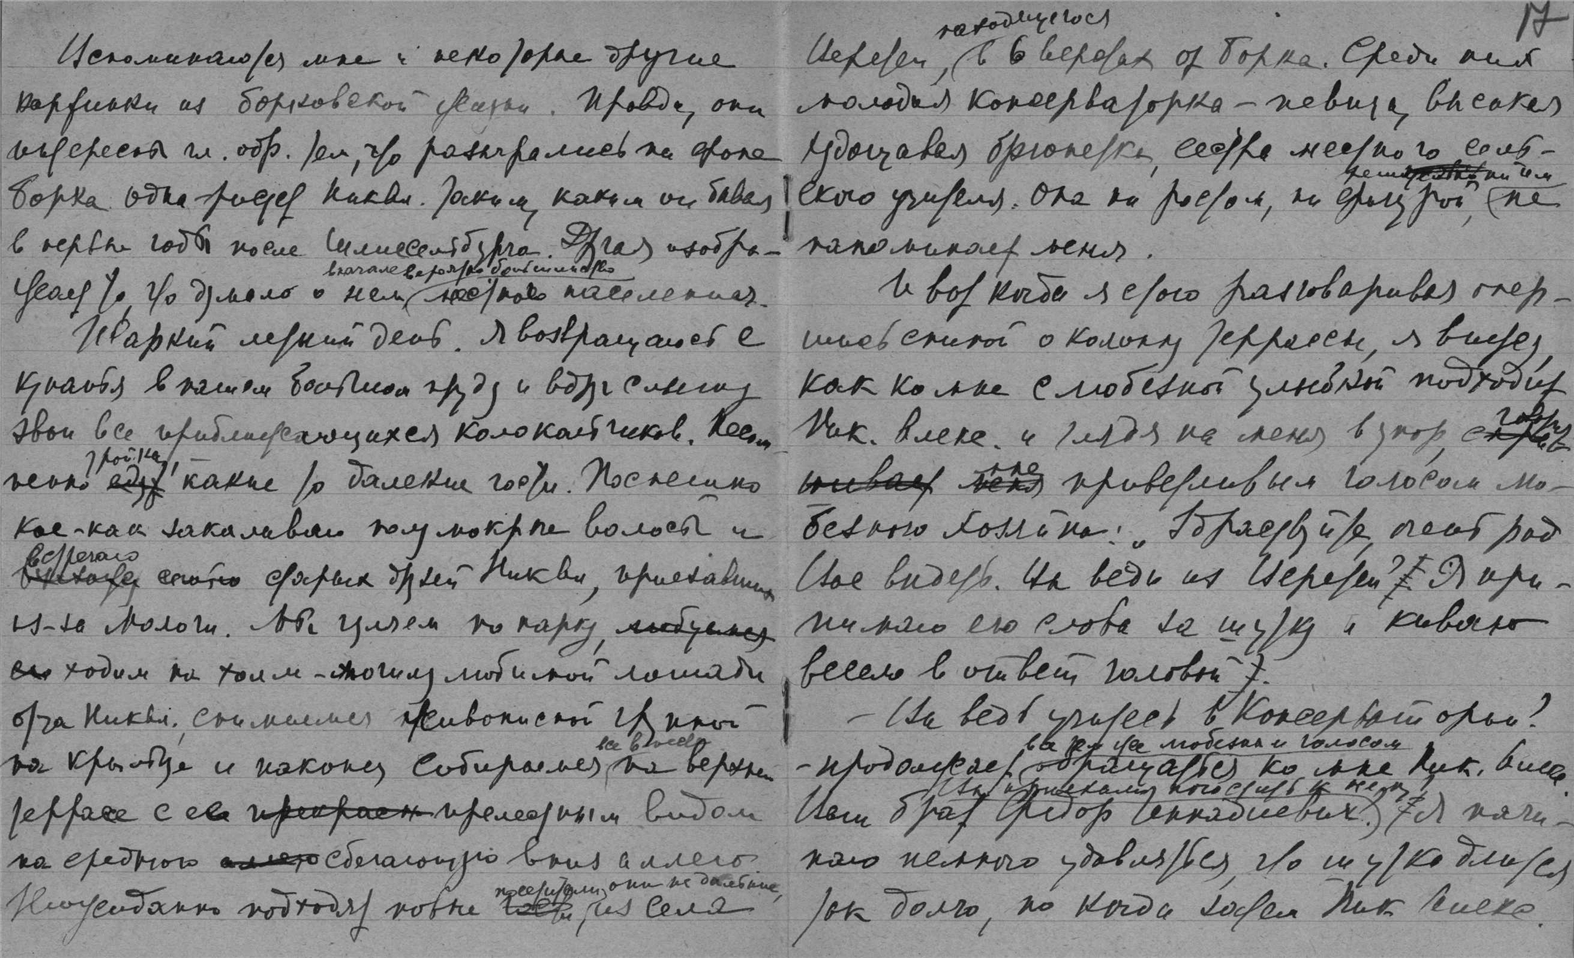 Вспоминаются мне и некоторые другие
картинки из борковской жизни. Правда, они
интересны гл. обр. тем, что разыгрались на фоне
Борка. Одна рисует Никвл. таким, каким он бывал
в первые годы после Шлиссельбурга. Другая изобра-
жает то, что думало о нем вначале вероятно большинство местного населения.
Жаркий летний день. Я возвращаюсь с
купанья в нашем большом пруду и вдруг слышу
звон все приближающихся колокольчиков. Несом-
ненно едут "тройка", какие то далекие гости. Поспешно
кое-как закалываю полумокрые волосы и
встречаю старых друзей Никвл, приехавших
из-за Мологи. Мы гуляем по парку, любуемся
ходим на холм-могилу любимой лошади
отца Никвл., снимаемся живописной группой
на крыльце и наконец собираемся все вместе на верхней
террасе с ее прекрасн прелестным видом
на среднюю аллею сбегающую вниз аллею
Неожиданно подходят новые гости посетители, они не дальние, из села
17
Веретеи, находящегося в 6 верстах от Борка. Среди них
молодая консерваторка – певица, высокая
худощавая брюнетка, сестра местного сель-
ского учителя. Она ни ростом, ни фигурой, решительно ничем не
напоминает меня.
И вот когда я стою разговаривая опер-
шись спиной о колонну террассы, я вижу,
как ко мне с любезной улыбкой подходит
Ник. Алекс. и глядя на меня в упор, говорит
шивает меня мне приветливым голосом лю-
безного хозяина: „Здравствуйте, очень рад
Вас видеть. Вы ведь из Веретеи? Я при-
нимаю его слова за шутку и киваю
весело в ответ головой.
– Вы ведь учитесь в Консерватории?
– продолжает тем же любезным голосом обращаться ко мне Ник. Алекс.
Вы приехали погостить к нему?
Ваш брат Федор Геннадиевич? Я начи-
наю немного удивляться, что шутка длится
так долго, но когда затем Ник Алекс.